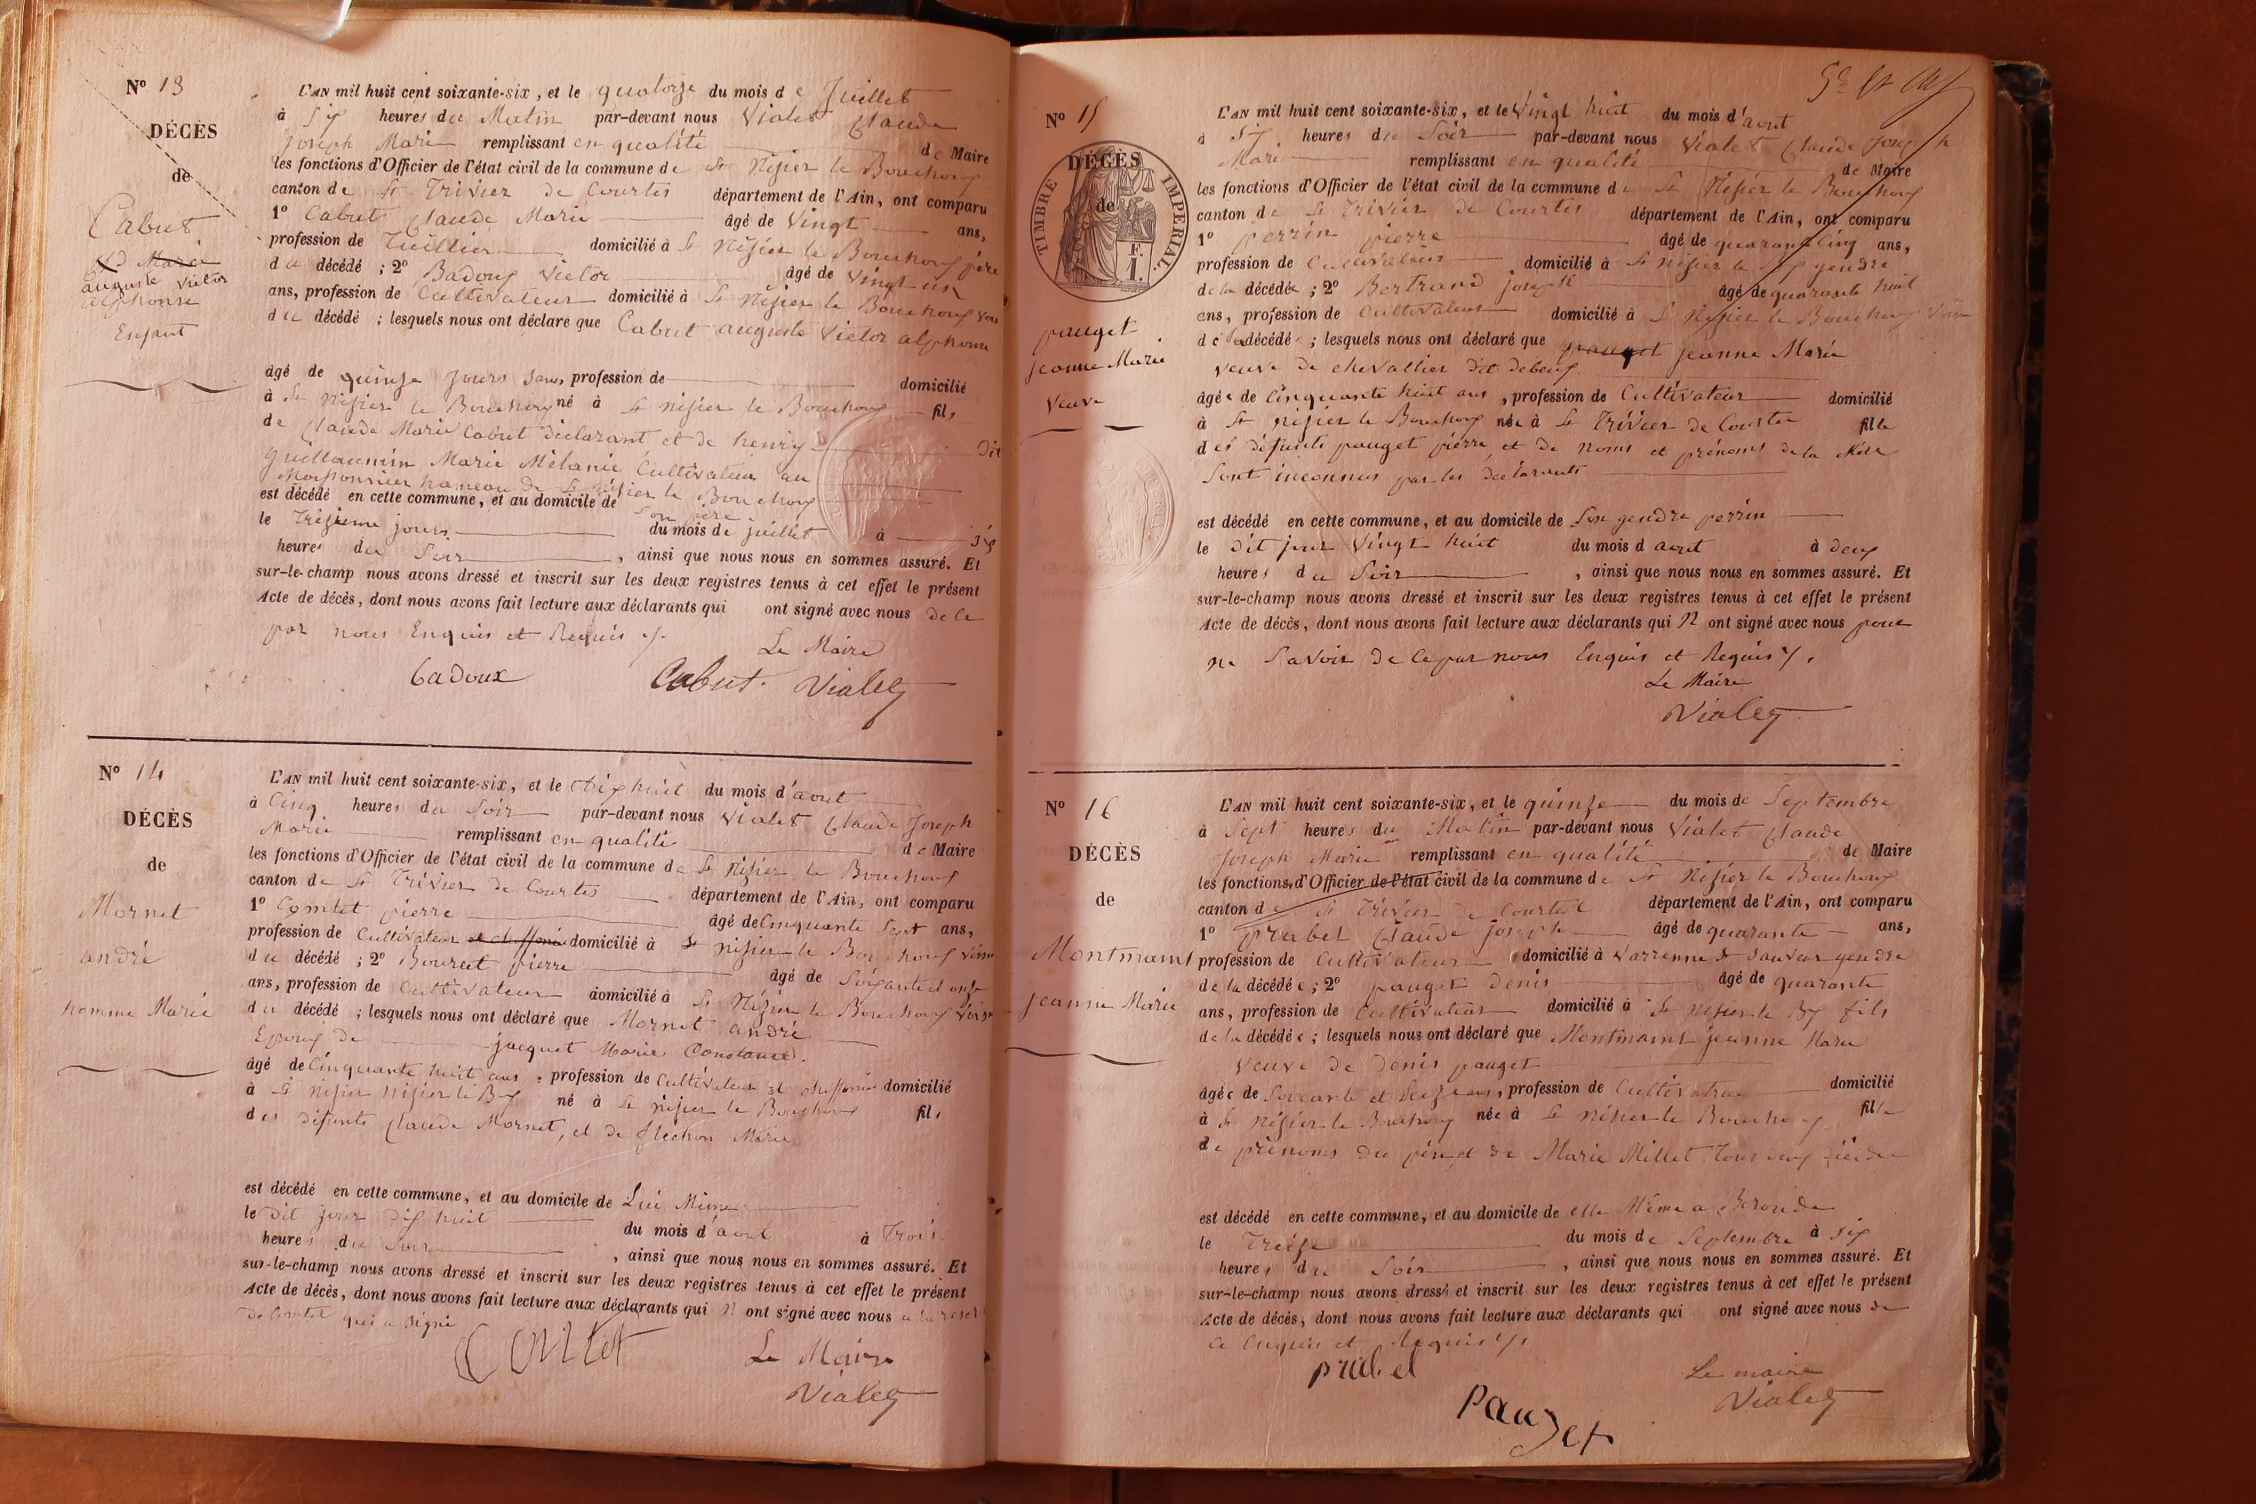 N° 13
DÉCÈS
de
Cabut
auguste victor
alphonse
Enfant
L'AN mil huit cent soixante-six, et le quatorze du mois de Juillet
à Six heures du Matin par-devant nous Vialet Claude
Joseph Marie remplissant en qualité de Maire
les fonctions d'Officier de l'état civil de la commune de St Nizier le Bouchoux
canton de St Trivier de Courtes département de l'Ain, ont comparu
1° Cabut Claude Marie âgé de Vingt ans,
profession de Tuillier domicilié à St Nizier le Bouchoux père
du décédé ; 2° Badoux Victor âgé de Vingt un
ans, profession de Cultivateur domicilié à St Nizier le Bouchoux
du décédé ; lesquels nous ont déclaré que Cabut auguste Victor alphonse
âgé de quinze jours sans profession de domicilié
à St Nizier le Bouchoux né à St nizier le Bouchoux fils
de Claude Marie Cabut déclarant et de henry dit
Guillaumin Marie Mélanie Cultivateur au
hameau de St Nizier le Bouchoux
est décédé en cette commune, et au domicile de Son père
le Treizieme jours du mois de juillet à six
heures du Soir , ainsi que nous nous en sommes assuré. Et
sur-le-champ nous avons dressé et inscrit sur les deux registres tenus à cet effet le présent
Acte de décès, dont nous avons fait lecture aux déclarants qui ont signé avec nous de ce
par nous Enquis et Requis
Le Maire
Badoux Cabut. Vialet
N° 14
DÉCÈS
de
Mornet
andré
homme Marié
L'AN mil huit cent soixante-six, et le Dix huit du mois d'aout
à Cinq heures du Soir par-devant nous Vialet Claude Joseph
Marie remplissant en qualité de Maire
les fonctions d'Officier de l'état civil de la commune de St Nizier le Bouchoux
canton de St Trivier de Courtes département de l'Ain, ont comparu
1° Comtet pierre âgé de Cinquante Sept ans,
profession de Cultivateur domicilié à St nizier le Bouchoux Voisin
du décédé ; 2° Bourcet pierre âgé de Soixante et onze
ans, profession de Cultivateur domicilié à St Nizier le Bouchoux Voisin
du décédé ; lesquels nous ont déclaré que Mornet andré
Epoux de jacquet Marie Constance.
âgé de Cinquante huit ans, profession de Cultivateur et domicilié
à St nizier nizier le Bx né à St nizier le Bouchoux fils
des défunts Claude Mornet, et de fléchon Marie
est décédé en cette commune, et au domicile de Lui Même
le dit jour dix huit du mois d'aout à Trois
heures du Soir , ainsi que nous nous en sommes assuré. Et
sur-le-champ nous avons dressé et inscrit sur les deux registres tenus à cet effet le présent
Acte de décès, dont nous avons fait lecture aux déclarants qui N ont signé avec nous
de Comtet qui a signé
Comtet
Le Maire
Vialet
N° 15
DÉCÈS
de
TIMBRE IMPÉRIAL
pauget
jeanne Marie
Veuve
L'AN mil huit cent soixante-six, et le Vingt huit du mois d'aout
à Six heures du Soir par-devant nous Vialet Claude Joseph
Marie remplissant en qualité de Maire
les fonctions d'Officier de l'état civil de la commune de St Nizier le Bouchoux
canton de St Trivier de Courtes département de l'Ain, ont comparu
1° perrin pierre âgé de quarante Cinq ans,
profession de Cultivateur domicilié à St nizier le Bx gendre
de la décédée ; 2° Bertrand joseph âgé de quarante huit
ans, profession de Cultivateur domicilié à St Nizier le Bouchoux
de la décédée ; lesquels nous ont déclaré que pauget jeanne Marie
veuve de chevallier dit debeuf
âgée de Cinquante huit ans, profession de Cultivateur domicilié
à St nizier le Bouchoux née à St Trivier de Courtes fille
des défunts pauget pierre, et de noms et prénoms de la Mère
Sont inconnus par les declarants
est décédé en cette commune, et au domicile de Son gendre perrin
le dit jour Vingt huit du mois d aout à deux
heures du Soir , ainsi que nous nous en sommes assuré. Et
sur-le-champ nous avons dressé et inscrit sur les deux registres tenus à cet effet le présent
Acte de décès, dont nous avons fait lecture aux déclarants qui N ont signé avec nous pour
ne Savoir de ce par nous Enquis et Requis
Le Maire
Vialet
N° 16
DÉCÈS
de
Montmaint
jeanne Marie
L'AN mil huit cent soixante-six, et le quinze du mois de Septembre
à Sept heures du Matin par-devant nous Vialet Claude
Joseph Marie remplissant en qualité de Maire
les fonctions d'Officier de l'état civil de la commune de St Nizier le Bouchoux
canton de St Trivier de Courtes département de l'Ain, ont comparu
1° prabel Claude joseph âgé de quarante ans,
profession de Cultivateur domicilié à Varrenne St Sauveur gendre
de la décédée ; 2° pauget denis âgé de quarante
ans, profession de Cultivateur domicilié à St Nizier le Bx fils
de la décédée ; lesquels nous ont déclaré que Montmaint jeanne Marie
Veuve de Denis pauget
âgée de Soixante et Seize ans, profession de Cultivatrice domicilié
à St Nizier le Bouchoux née à St Nizier le Bouchoux fille
de prénoms du père et de Marie Millet tous deux
est décédé en cette commune, et au domicile de elle Même a
le Treize du mois de Septembre à Six
heures du Soir , ainsi que nous nous en sommes assuré. Et
sur-le-champ nous avons dressé et inscrit sur les deux registres tenus à cet effet le présent
Acte de décès, dont nous avons fait lecture aux déclarants qui ont signé avec nous de
ce Enquis et Requis
prabel
Le maire
Pauget Vialet